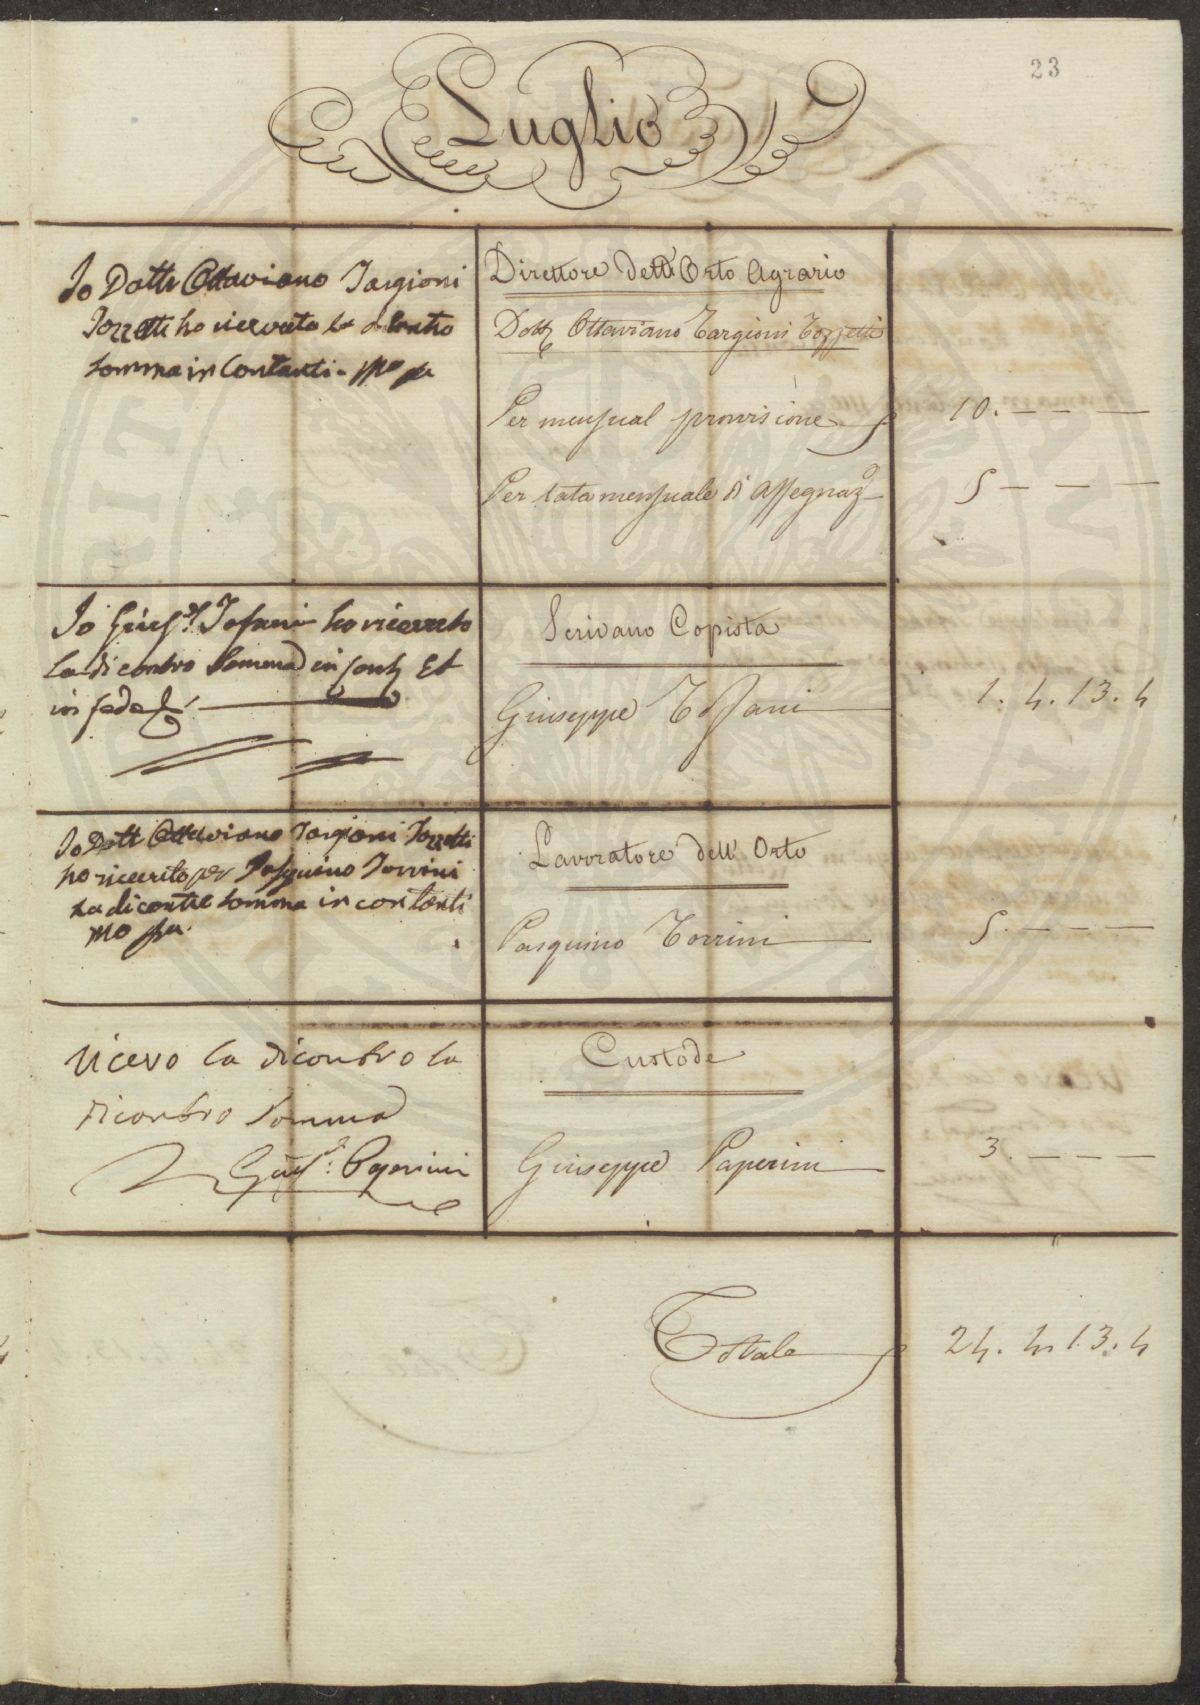 23
Luglio
Io Dottr Ottaviano Targioni
Tozzetti ho ricevuto la di contro
somma in Contanti. mo pa
Direttore dell'Orto Agrario
Dottr Ottaviano Targioni Tozzetti
Per mensual provisione
10. — — —
Per rata mensuale di assegnaz
5 — — —
Io Giusee Tofani ho ricevuto
la di contro Somma in contti Et
in fede
Scrivano Copista
Giuseppe Tofani
1. 4. 13. 4
Io Dott Ottaviano Targioni Tozzetti
ho ricevuto per Pasquino Torrini
la di contro somma in contanti
mo pa.
Lavoratore dell' Orto
Pasquino Torrini
5. — — —
Ricevo la dicontro la
dicontro Somma
Giuse: Paperini
Custode
Giuseppe Paperini
3. — — —
Totale
24. 4. 13. 4